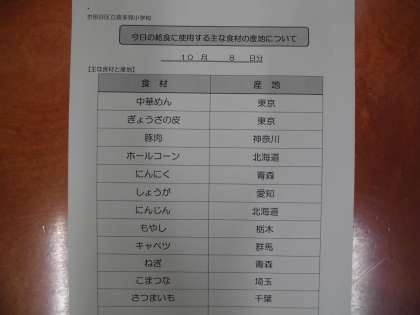 世田谷区立喜多見小学校
今日の給食に使用する主な食材の産地について
10 月 8 日分
【主な食材と産地】
食 材 産 地
中華めん 東京
ぎょうざの皮 東京
豚肉 神奈川
ホールコーン 北海道
にんにく 青森
しょうが 愛知
にんじん 北海道
もやし 栃木
キャベツ 群馬
ねぎ 青森
こまつな 埼玉
さつまいも 千葉